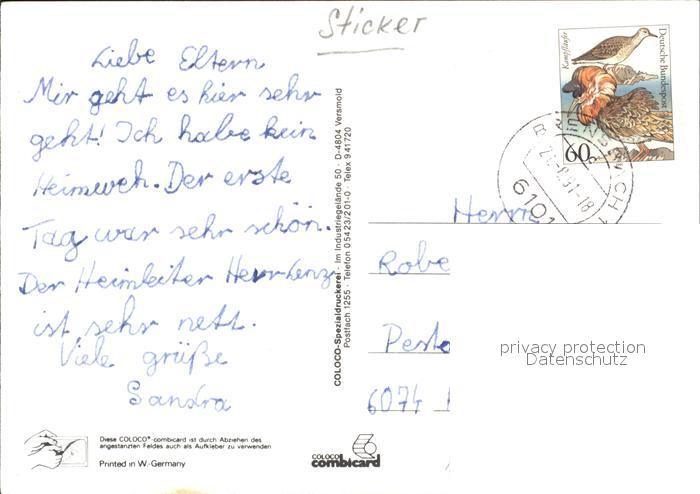 Sticker
Liebe Eltern
Mir geht es hier sehr
geht! Ich habe kein
Heimweh. Der erste
Tag war sehr schön.
Der Heimleiter Herr Lenz
ist sehr nett.
Viele grüße
Sandra
Diese COLOCO®-combicard ist durch Abziehen des
angestanzten Feldes auch als Aufkleber zu verwenden
Printed in W.-Germany
COLOCO-Spezialdruckerei · Im Industriegelände 50 · D-4804 Versmold
Postfach 1255 · Telefon 05423/201-0 · Telex 941720
COLOCO
combicard
Kampfläufer
Deutsche Bundespost
60
6101
Herrn
Robe
Pesta
6074
privacy protection
Datenschutz